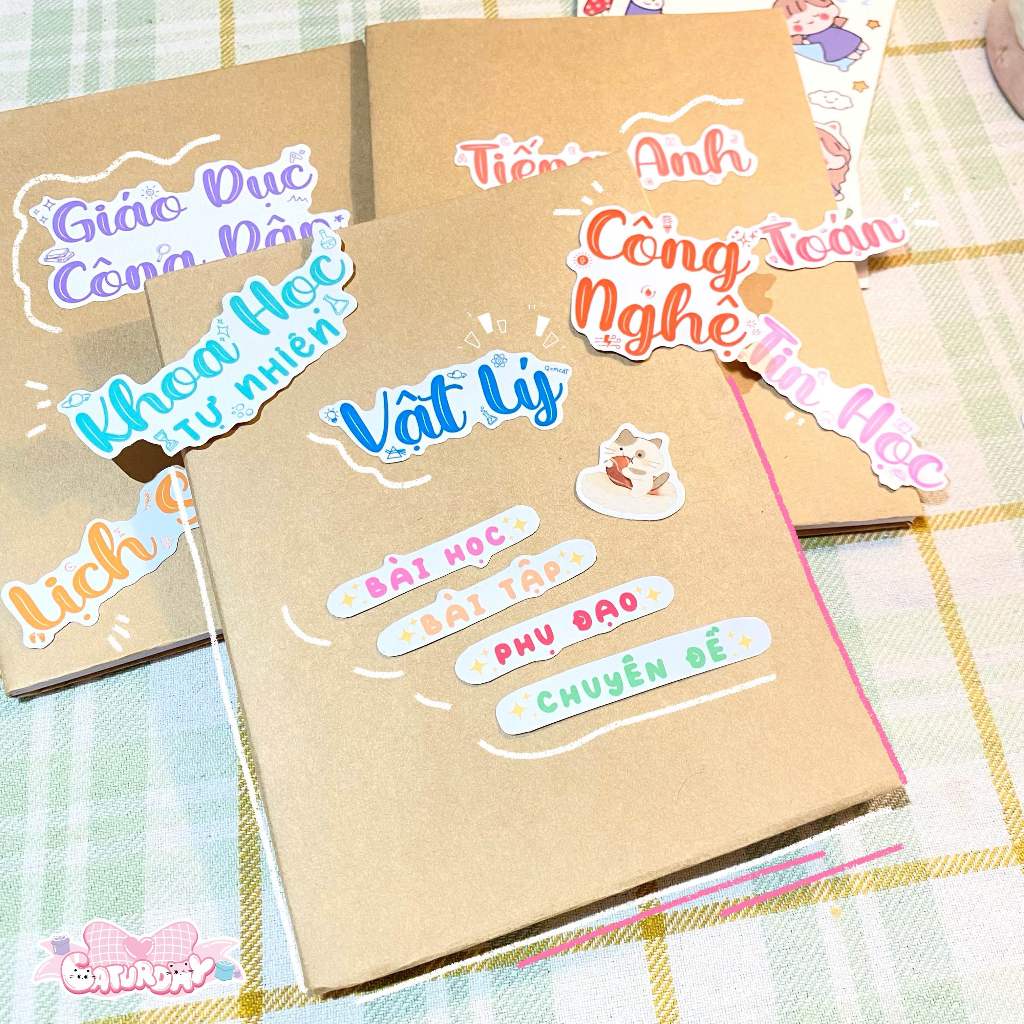 Giáo Dục
Công Dân
Tiếng Anh
Khoa Học
TỰ NHIÊN
Công
Nghệ
Toán
Tin Học
Vật Lý
Lịch
BÀI HỌC
BÀI TẬP
PHỤ ĐẠO
CHUYÊN ĐỀ
CATURDAY